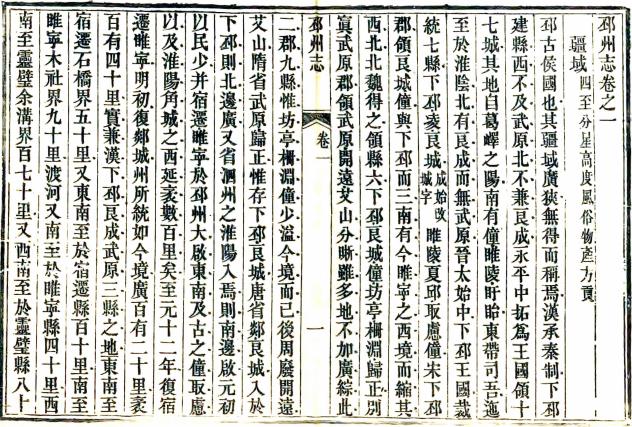 邳州志卷之一
疆域 四至 分星 高度 風俗 物產 方貢
邳古侯國也其疆域廣狹無得而稱焉漢承秦制下邳
建縣西不及武原北不兼良成永平中拓為王國領十
七城其地自葛嶧之陽南有僮睢陵盱眙東帶司吾迤
至於淮陰北有良成而無武原晉太始中下邳王國裁
統七縣下邳夌良城成始改城字睢陵夏邱取慮僮宋下邳
郡領良城僮與下邳而二南有今睢寧之西境而縮其
西北北魏得之領縣六下邳良城僮坊亭柵淵歸正別
寘武原郡領武原開遠艾山分晰雖多地不加廣綜此
邳州志
卷一
一
二郡九縣惟坊亭柵淵僮少溢今境而已後周廢開遠
艾山隋省武原歸正惟存下邳良城唐省鄰良城入於
下邳則北邊廣又省泗州之淮陽入焉則南邊啟元初
以民少并宿遷睢寧於邳州大啟東南及古之僮取慮
以及淮陽角城之西延袤數百里矣至元十二年復宿
遷睢寧明初復鄰城州所統如今境廣百有二十里袤
百有四十里實兼漢下邳良成武原三縣之地東南至
宿遷石橋界五十里又東南至於宿遷縣百十里南至
睢寧木社界九十里渡河又南至於睢寧縣四十里西
南至靈璧余溝界百七十里又西南至於靈璧縣八十